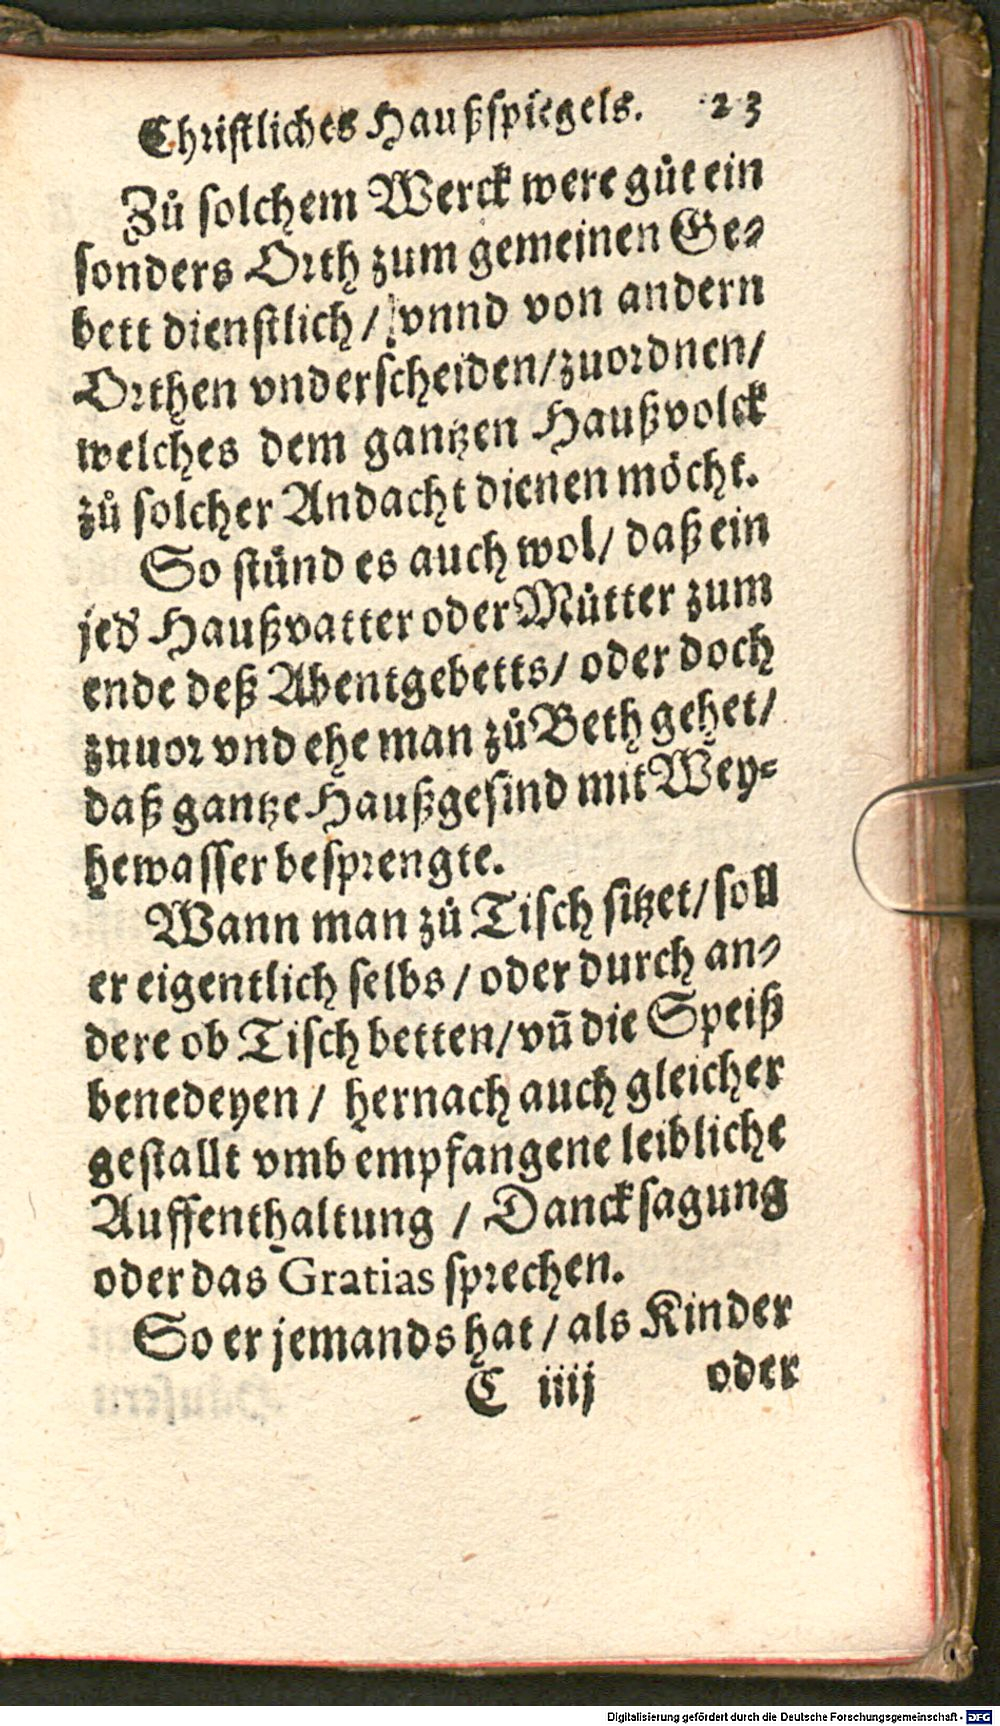 Christliches Haußspiegels. 23
Zů solchem Werck were gůt ein
sonders Orth zum gemeinen Ge-
bett dienstlich / vnnd von andern
Orthen vnderscheiden/zuordnen/
welches dem gantzen Haußvolck
zů solcher Andacht dienen möcht.
So stünd es auch wol/ daß ein
jed Haußvatter oder Můtter zum
ende deß Abentgebetts/ oder doch
znuor vnd ehe man zů Beth gehet/
daß gantze Haußgesind mit Wey-
hewasser besprengte.
Wann man zů Tisch sitzet/ soll
er eigentlich selbs / oder durch an-
dere ob Tisch betten/ vñ die Speiß
benedeyen / hernach auch gleicher
gestallt vmb empfangene leibliche
Auffenthaltung / Dancksagung
oder das Gratias sprechen.
So er jemands hat / als Kinder
C iiij oder
Digitalisierung gefördert durch die Deutsche Forschungsgemeinschaft - DFG